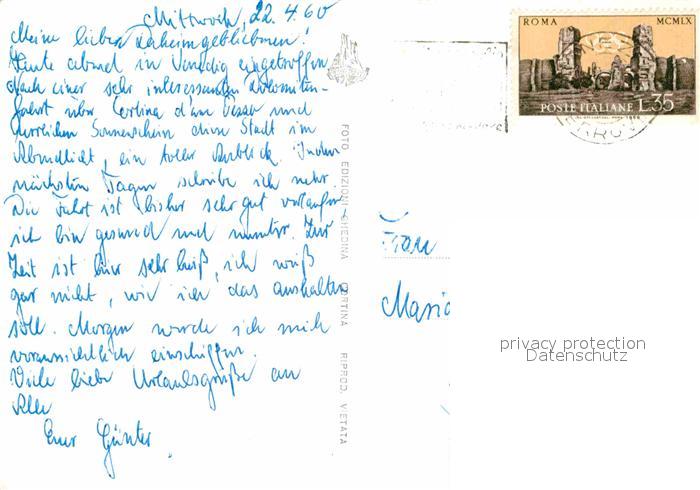 Mittwoch, 22.4.60
Meine lieben Daheimgebliebenen!
Heute abend in Venedig eingetroffen
Nach einer sehr interessanten Dolomiten-
fahrt über Cortina d'Am Pezzo und
herrlichem Sonnenschein diese Stadt im
Abendlicht, ein toller Anblick. In den
nächsten Tagen schreibe ich mehr.
Die Fahrt ist bisher sehr gut verlaufen
ich bin gesund und munter. Zur
Zeit ist hier sehr heiß, ich weiß
gar nicht, wie ich das aushalten
soll. Morgen werde ich mich
voraussichtlich einschiffen.
Viele liebe Urlaubsgrüße an
Alle
Euer Günter.
FOTO EDIZIONI GHEDINA CORTINA RIPROD. VIETATA
ROMA MCMLX
POSTE ITALIANE L.35
Frau
Maria
privacy protection
Datenschutz